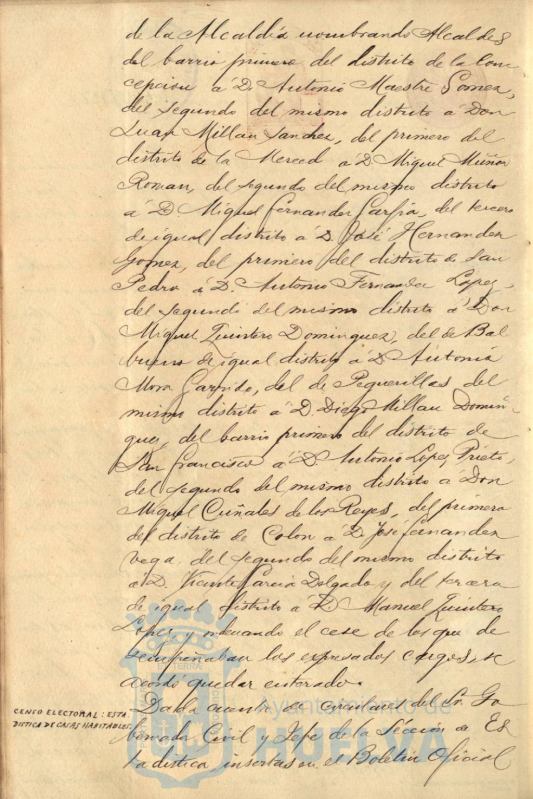 de la Alcaldía nombrando Alcaldes
del barrio primero del distrito de la Con
cepcion á D. Antonio Maestre Gomez,
del segundo del mismo distrito á Don
Juan Millan Sanchez, del primero del
distrito de la Merced á D. Miguel Muñoz
Roman, del segundo del mismo distrito
á D. Miguel Fernandez Garfia, del tercero
de igual distrito á D. José Hernandez
Gomez, del primero del distrito de San
Pedro á D. Antonio Fernandez Lopez,
del segundo del mismo distrito á Don
Miguel Quintero Dominguez, del de Bal
buena de igual distrito á D. Antonio
Mora Garrido, del de Peguerillas del
mismo distrito á D. Diego Millan Domin-
guez, del barrio primero del distrito de
San Francisco á D. Antonio Lopez Prieto,
del segundo del mismo distrito á Don
Miguel Cuñales de los Reyes, del primero
del distrito de Colon á D. José Fernandez
Vega, del segundo del mismo distrito
á D. Vicente Garcia Delgado y del tercero
de igual distrito á D. Manuel Quintero
Lopez y ordenando el cese de los que de
sempeñaban los expresados cargos, se
acordó quedar enterado.
CENSO ELECTORAL: ESTA
DISTICA DE CASAS HABITABLES
Dada cuenta de circulares del Sr. Go
bernador Civil y Jefe de la Sección de Es
tadistica insertas en el Boletin Oficial
Ayuntamiento de
HUELVA